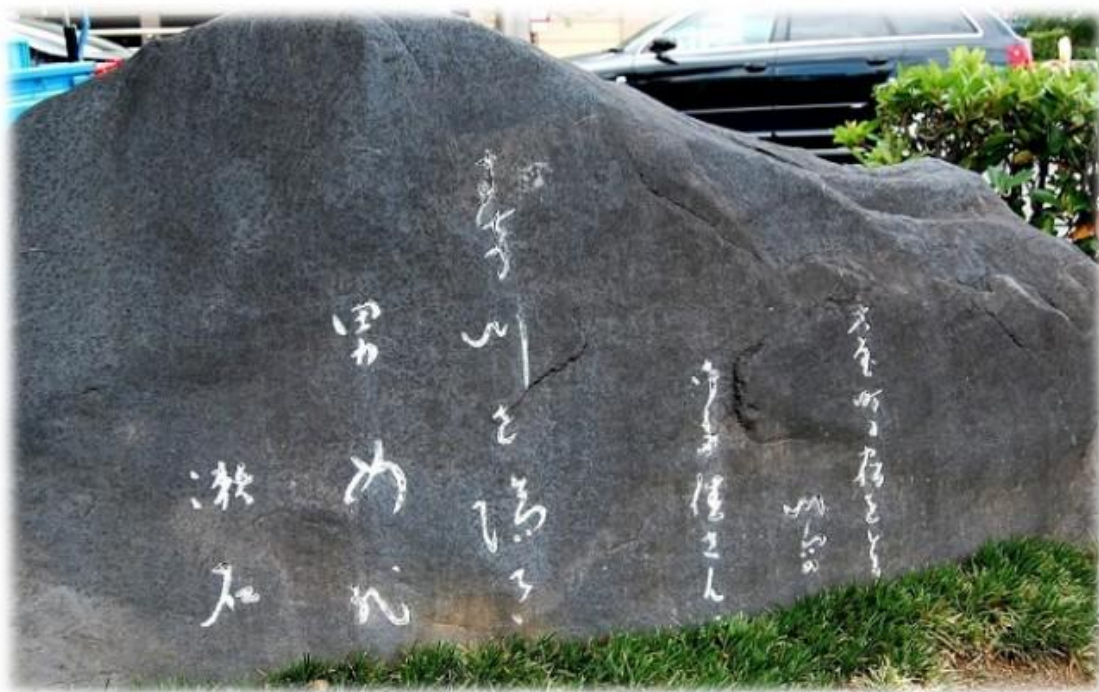 木屋町に宿をとりて
川向の
御多佳さんに
春の川を隔てゝ
男女哉
漱石